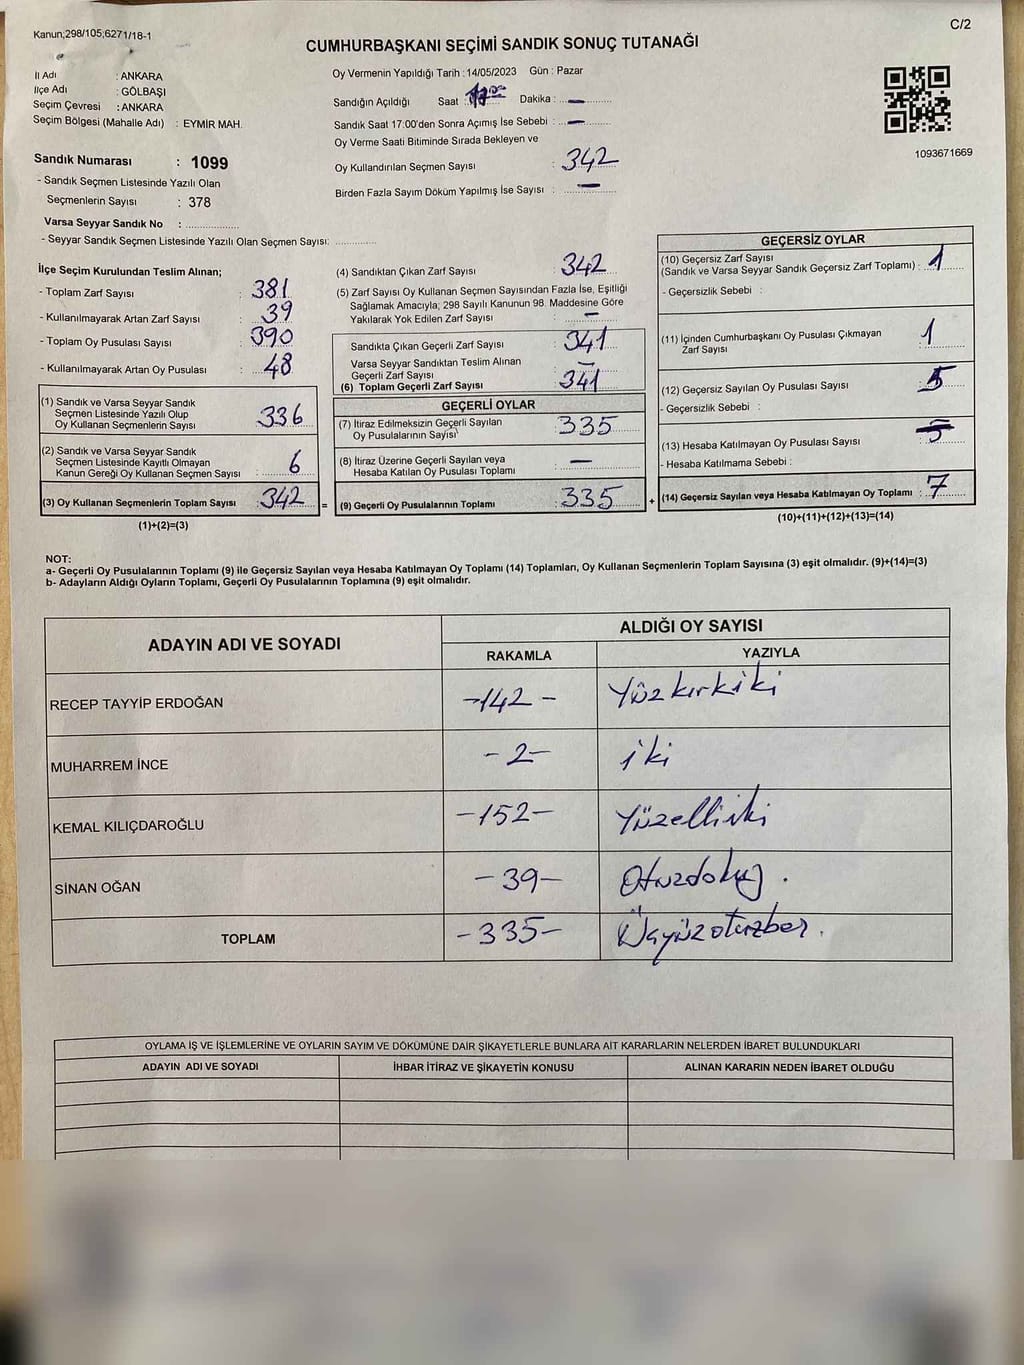 Kanun;298/105;6271/18-1
C/2
CUMHURBAŞKANI SEÇİMİ SANDIK SONUÇ TUTANAĞI
İl Adı : ANKARA
İlçe Adı : GÖLBAŞI
Seçim Çevresi : ANKARA
Seçim Bölgesi (Mahalle Adı) : EYMİR MAH.
Sandık Numarası : 1099
- Sandık Seçmen Listesinde Yazılı Olan
Seçmenlerin Sayısı : 378
Varsa Seyyar Sandık No :
- Seyyar Sandık Seçmen Listesinde Yazılı Olan Seçmen Sayısı:
Oy Vermenin Yapıldığı Tarih :14/05/2023 Gün : Pazar
Sandığın Açıldığı Saat : Dakika : —
Sandık Saat 17:00'den Sonra Açımış İse Sebebi : —
Oy Verme Saati Bitiminde Sırada Bekleyen ve
Oy Kullandırılan Seçmen Sayısı : 342
Birden Fazla Sayım Döküm Yapılmış İse Sayısı : —
1093671669
İlçe Seçim Kurulundan Teslim Alınan;
- Toplam Zarf Sayısı : 381
- Kullanılmayarak Artan Zarf Sayısı : 39
- Toplam Oy Pusulası Sayısı : 390
- Kullanılmayarak Artan Oy Pusulası : 48
(1) Sandık ve Varsa Seyyar Sandık
Seçmen Listesinde Yazılı Olup
Oy Kullanan Seçmenlerin Sayısı : 336
(2) Sandık ve Varsa Seyyar Sandık
Seçmen Listesinde Kayıtlı Olmayan
Kanun Gereği Oy Kullanan Seçmen Sayısı : 6
(3) Oy Kullanan Seçmenlerin Toplam Sayısı : 342 =
(1)+(2)=(3)
(4) Sandıktan Çıkan Zarf Sayısı : 342
(5) Zarf Sayısı Oy Kullanan Seçmen Sayısından Fazla İse, Eşitliği
Sağlamak Amacıyla; 298 Sayılı Kanunun 98. Maddesine Göre
Yakılarak Yok Edilen Zarf Sayısı : —
Sandıkta Çıkan Geçerli Zarf Sayısı : 341
Varsa Seyyar Sandıktan Teslim Alınan
Geçerli Zarf Sayısı : —
(6) Toplam Geçerli Zarf Sayısı : 341
GEÇERLİ OYLAR
(7) İtiraz Edilmeksizin Geçerli Sayılan
Oy Pusulalarının Sayısı : 335
(8) İtiraz Üzerine Geçerli Sayılan veya
Hesaba Katılan Oy Pusulası Toplamı : —
(9) Geçerli Oy Pusulalarının Toplamı : 335 +
GEÇERSİZ OYLAR
(10) Geçersiz Zarf Sayısı
(Sandık ve Varsa Seyyar Sandık Geçersiz Zarf Toplamı) : 1
- Geçersizlik Sebebi :
(11) İçinden Cumhurbaşkanı Oy Pusulası Çıkmayan
Zarf Sayısı : 1
(12) Geçersiz Sayılan Oy Pusulası Sayısı : 5
- Geçersizlik Sebebi :
(13) Hesaba Katılmayan Oy Pusulası Sayısı :
- Hesaba Katılmama Sebebi :
(14) Geçersiz Sayılan veya Hesaba Katılmayan Oy Toplamı : 7
(10)+(11)+(12)+(13)=(14)
NOT:
a- Geçerli Oy Pusulalarının Toplamı (9) ile Geçersiz Sayılan veya Hesaba Katılmayan Oy Toplamı (14) Toplamları, Oy Kullanan Seçmenlerin Toplam Sayısına (3) eşit olmalıdır. (9)+(14)=(3)
b- Adayların Aldığı Oyların Toplamı, Geçerli Oy Pusulalarının Toplamına (9) eşit olmalıdır.
ADAYIN ADI VE SOYADI
ALDIĞI OY SAYISI
RAKAMLA YAZIYLA
RECEP TAYYİP ERDOĞAN -142- Yüzkırkiki
MUHARREM İNCE -2- iki
KEMAL KILIÇDAROĞLU -152- Yüzelliiki
SİNAN OĞAN -39- Otuzdokuz.
TOPLAM -335- Üçyüzotuzbeş.
OYLAMA İŞ VE İŞLEMLERİNE VE OYLARIN SAYIM VE DÖKÜMÜNE DAİR ŞİKAYETLERLE BUNLARA AİT KARARLARIN NELERDEN İBARET BULUNDUKLARI
ADAYIN ADI VE SOYADI İHBAR İTİRAZ VE ŞİKAYETİN KONUSU ALINAN KARARIN NEDEN İBARET OLDUĞU